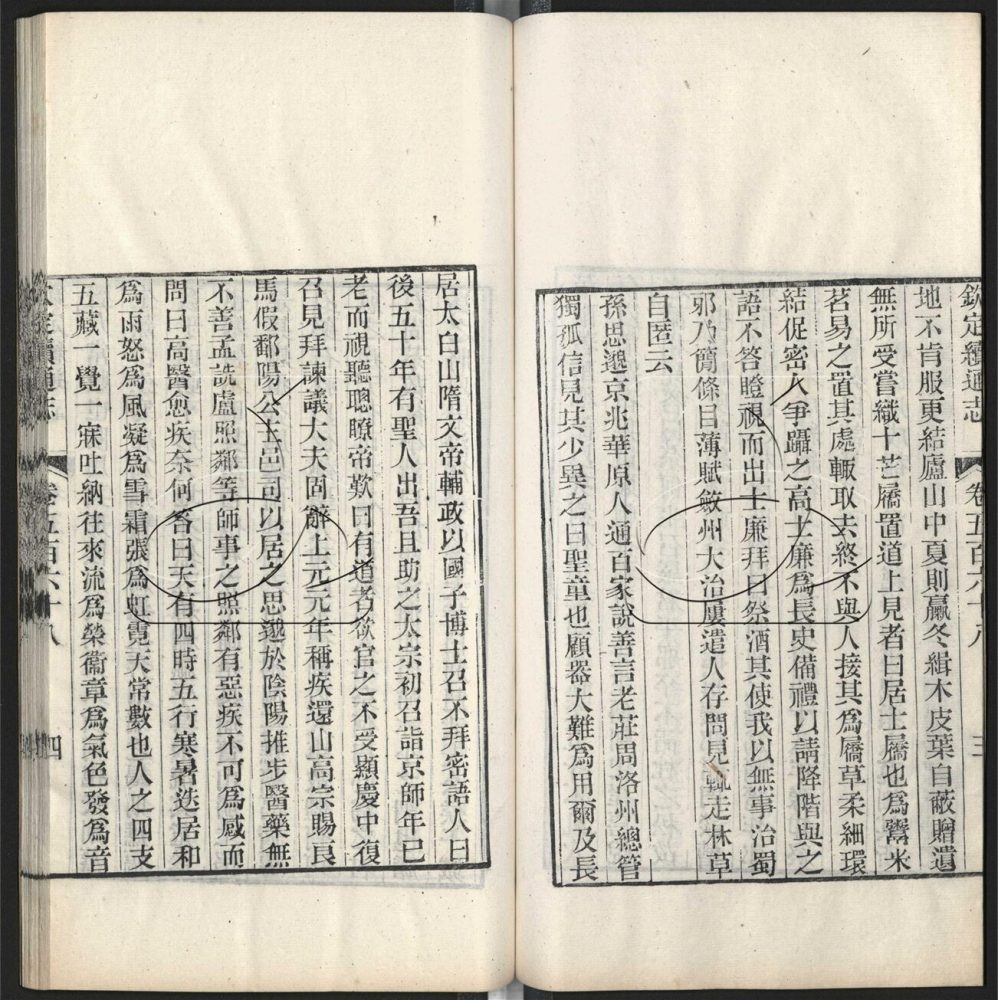 欽定續通志 卷五百六十八 三
地不肯服更結廬山中夏則臝冬緝木皮葉自蔽贈遺
無所受嘗織十芒屩置道上見者曰居士屩也爲鬻米
茗易之置其處輙取去終不與人接其爲屩草柔細環
結促密人爭躡之高士廉爲長史備禮以請降階與之
語不答瞪視而出士廉拜曰祭酒其使我以無事治蜀
邪乃簡條目薄賦斂州大治屢遣人存問見輒走林草
自匿云
孫思邈京兆華原人通百家說善言老莊周洛州總管
獨孤信見其少異之曰聖童也顧器大難爲用爾及長
居太白山隋文帝輔政以國子博士召不拜密語人曰
後五十年有聖人出吾且助之太宗初召詣京師年已
老而視聽聰瞭帝歎曰有道者欲官之不受顯慶中復
召見拜諫議大夫固辭上元元年稱疾還山高宗賜良
馬假鄱陽公主邑司以居之思邈於陰陽推步醫藥無
不善孟詵盧照鄰等師事之照鄰有惡疾不可爲感而
問曰高醫愈疾奈何答曰天有四時五行寒暑迭居和
爲雨怒爲風凝爲雪霜張爲虹霓天常數也人之四支
五藏一覺一寐吐納往來流爲榮衞章爲氣色發爲音
欽定續通志 卷五百六十八 四